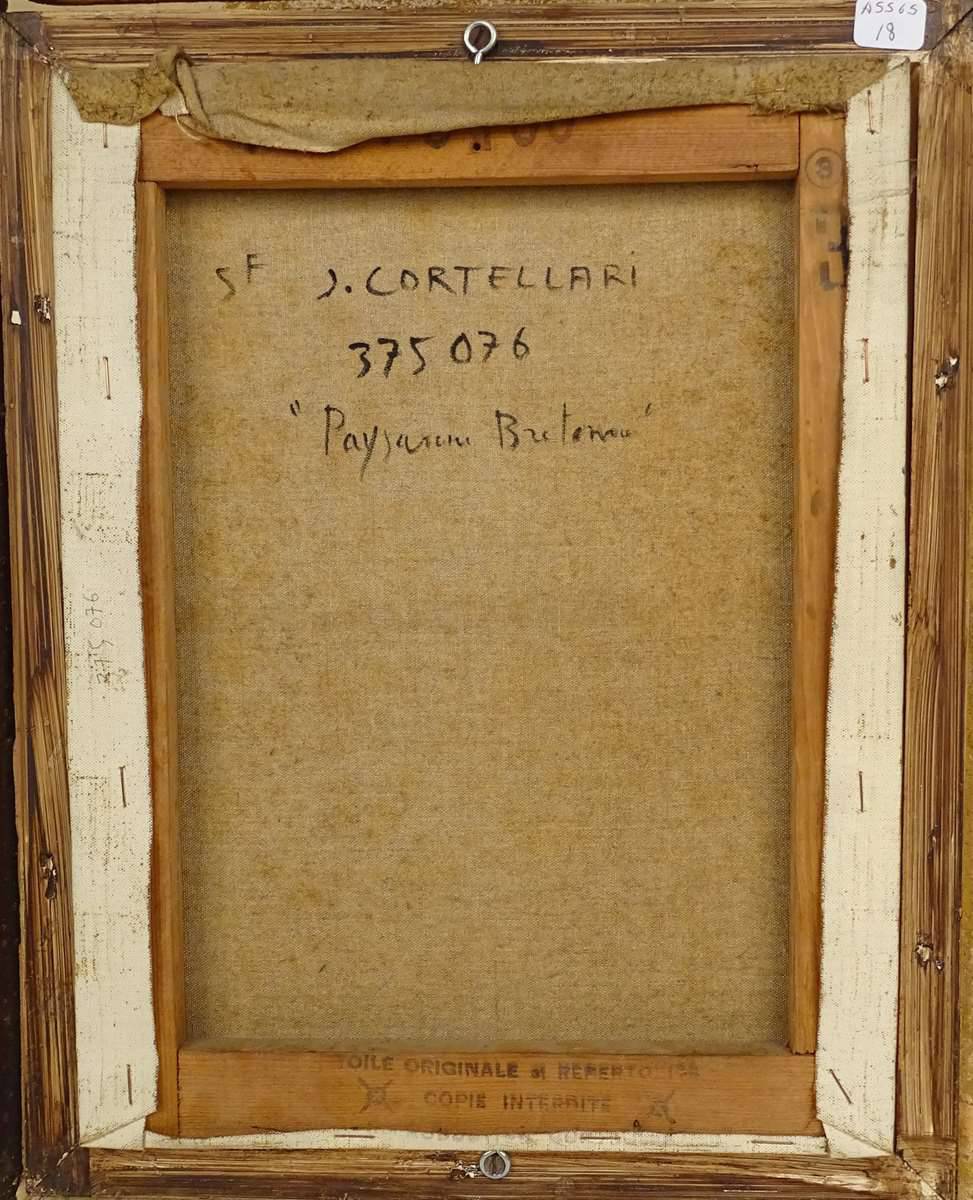 A5565
18
3
5F J. CORTELLARI
375 076
"Paysanne Bretonne"
375 076
TOILE ORIGINALE et REPERTORIEE
COPIE INTERDITE